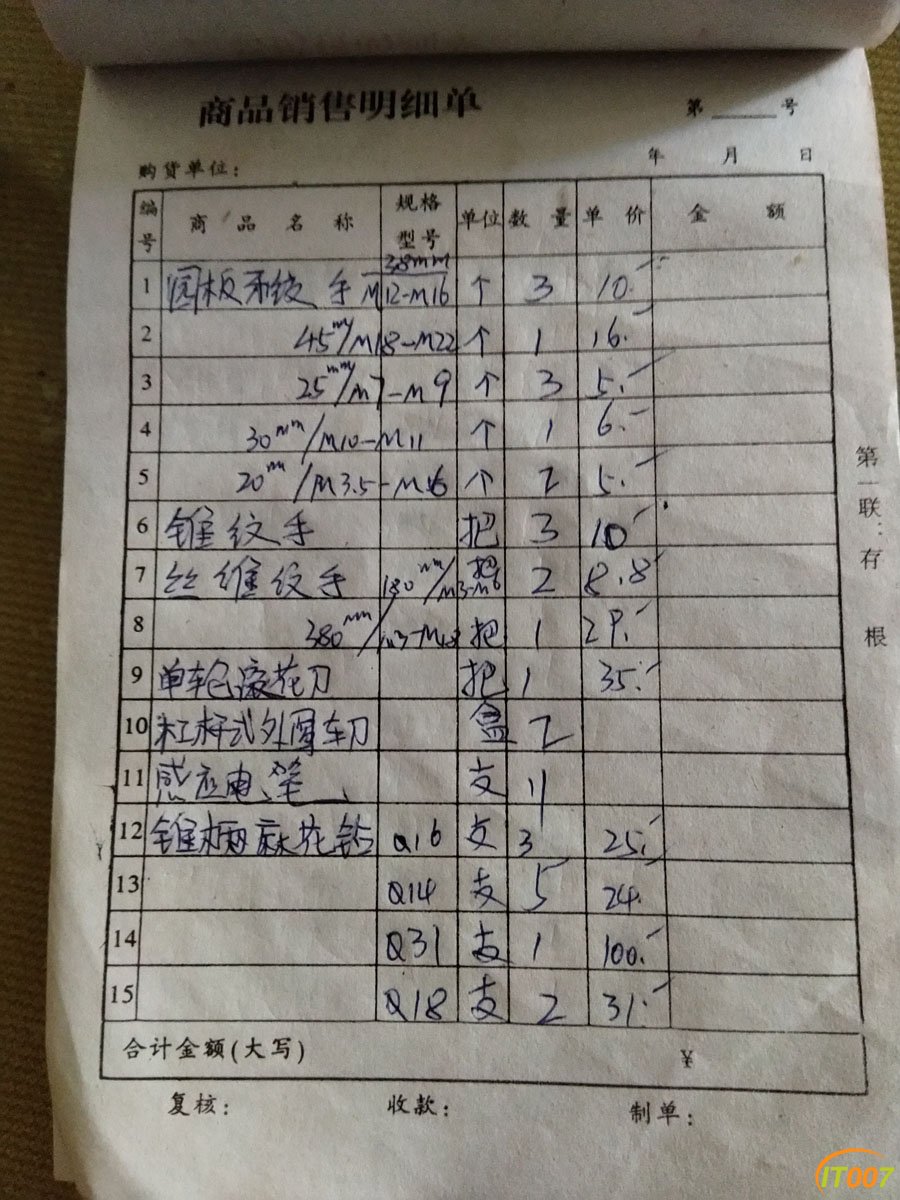 商品销售明细单 第____号
购货单位： 年 月 日
编号 商品名称 规格型号 单位 数量 单价 金额
38mm
1 园板牙纹手 M12-M16 个 3 10.-
2 45mm/M18-M22 个 1 16.-
3 25mm/M7-M9 个 3 5.-
4 30mm/M10-M11 个 1 6.-
5 20mm/M3.5-M6 个 2 5.-
6 锥纹手 把 3 10-
7 丝锥纹手 180mm/M3-M6 把 2 8.8-
8 380mm/ 把 1 29.-
9 单轮滚花刀 把 1 35.-
10 杠杆式外圆车刀 盒 2
11 感应电笔 支 11
12 锥柄麻花钻 Q16 支 3 25.-
13 Q14 支 5 24.
14 Q31 支 1 100.-
15 Q18 支 2 31.-
合计金额(大写) ¥
复核： 收款： 制单：
第一联：存根
IT007